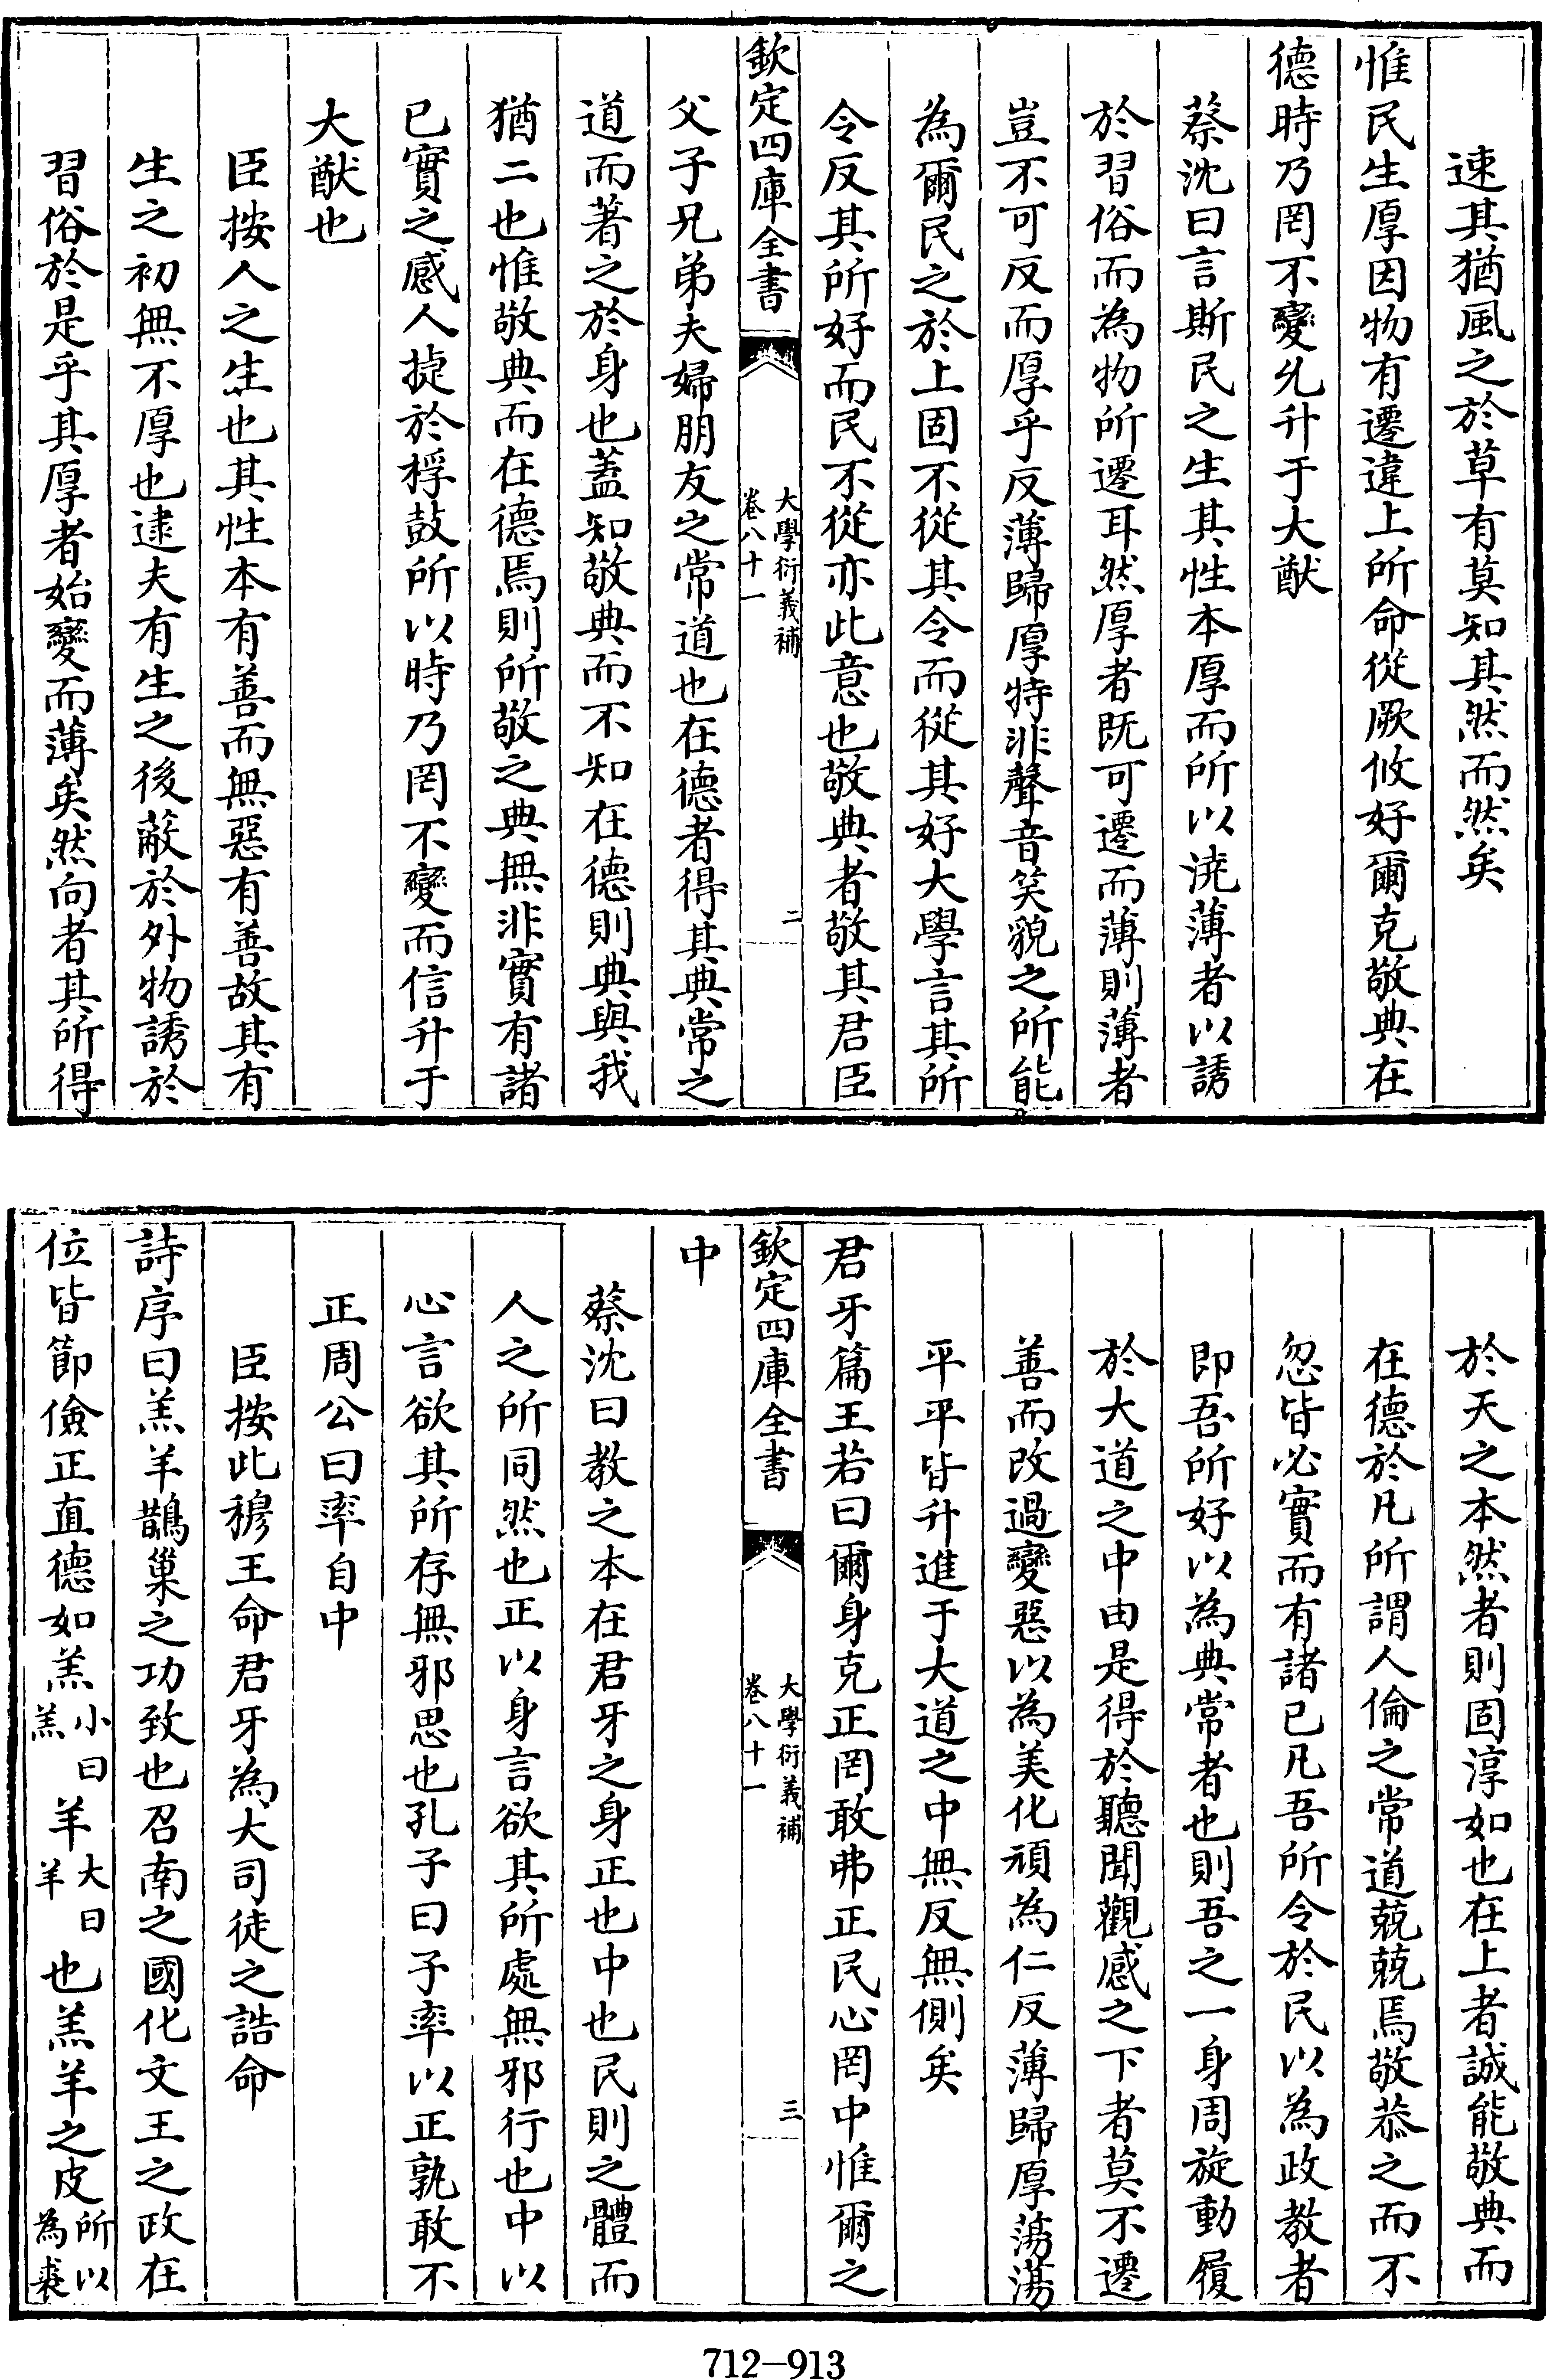 速其猶風之於草有莫知其然而然矣
惟民生厚因物有遷違上所命從厥攸好爾克敬典在
德時乃罔不變允升于大猷
蔡沈曰言斯民之生其性本厚而所以澆薄者以誘
於習俗而為物所遷耳然厚者既可遷而薄則薄者
豈不可反而厚乎反薄歸厚特非聲音笑貌之所能
為爾民之於上固不從其令而從其好大學言其所
令反其所好而民不從亦此意也敬典者敬其君臣
欽定四庫全書
大學衍義補
卷八十一
二
父子兄弟夫婦朋友之常道也在德者得其典常之
道而著之於身也蓋知敬典而不知在德則典與我
猶二也惟敬典而在德焉則所敬之典無非實有諸
已實之感人捷於桴鼓所以時乃罔不變而信升于
大猷也
臣按人之生也其性本有善而無惡有善故其有
生之初無不厚也逮夫有生之後蔽於外物誘於
習俗於是乎其厚者始變而薄矣然向者其所得
於天之本然者則固淳如也在上者誠能敬典而
在德於凡所謂人倫之常道兢兢焉敬恭之而不
忽皆必實而有諸已凡吾所令於民以為政教者
即吾所好以為典常者也則吾之一身周旋動履
於大道之中由是得於聽聞觀感之下者莫不遷
善而改過變惡以為美化頑為仁反薄歸厚蕩蕩
平平皆升進于大道之中無反無側矣
君牙篇王若曰爾身克正罔敢弗正民心罔中惟爾之
欽定四庫全書
大學衍義補
卷八十一
三
中
蔡沈曰教之本在君牙之身正也中也民則之體而
人之所同然也正以身言欲其所處無邪行也中以
心言欲其所存無邪思也孔子曰子率以正孰敢不
正周公曰率自中
臣按此穆王命君牙為大司徒之誥命
詩序曰羔羊鵲巢之功致也召南之國化文王之政在
位皆節儉正直德如羔小曰羔羊大曰羊也羔羊之皮所以為裘
712—913